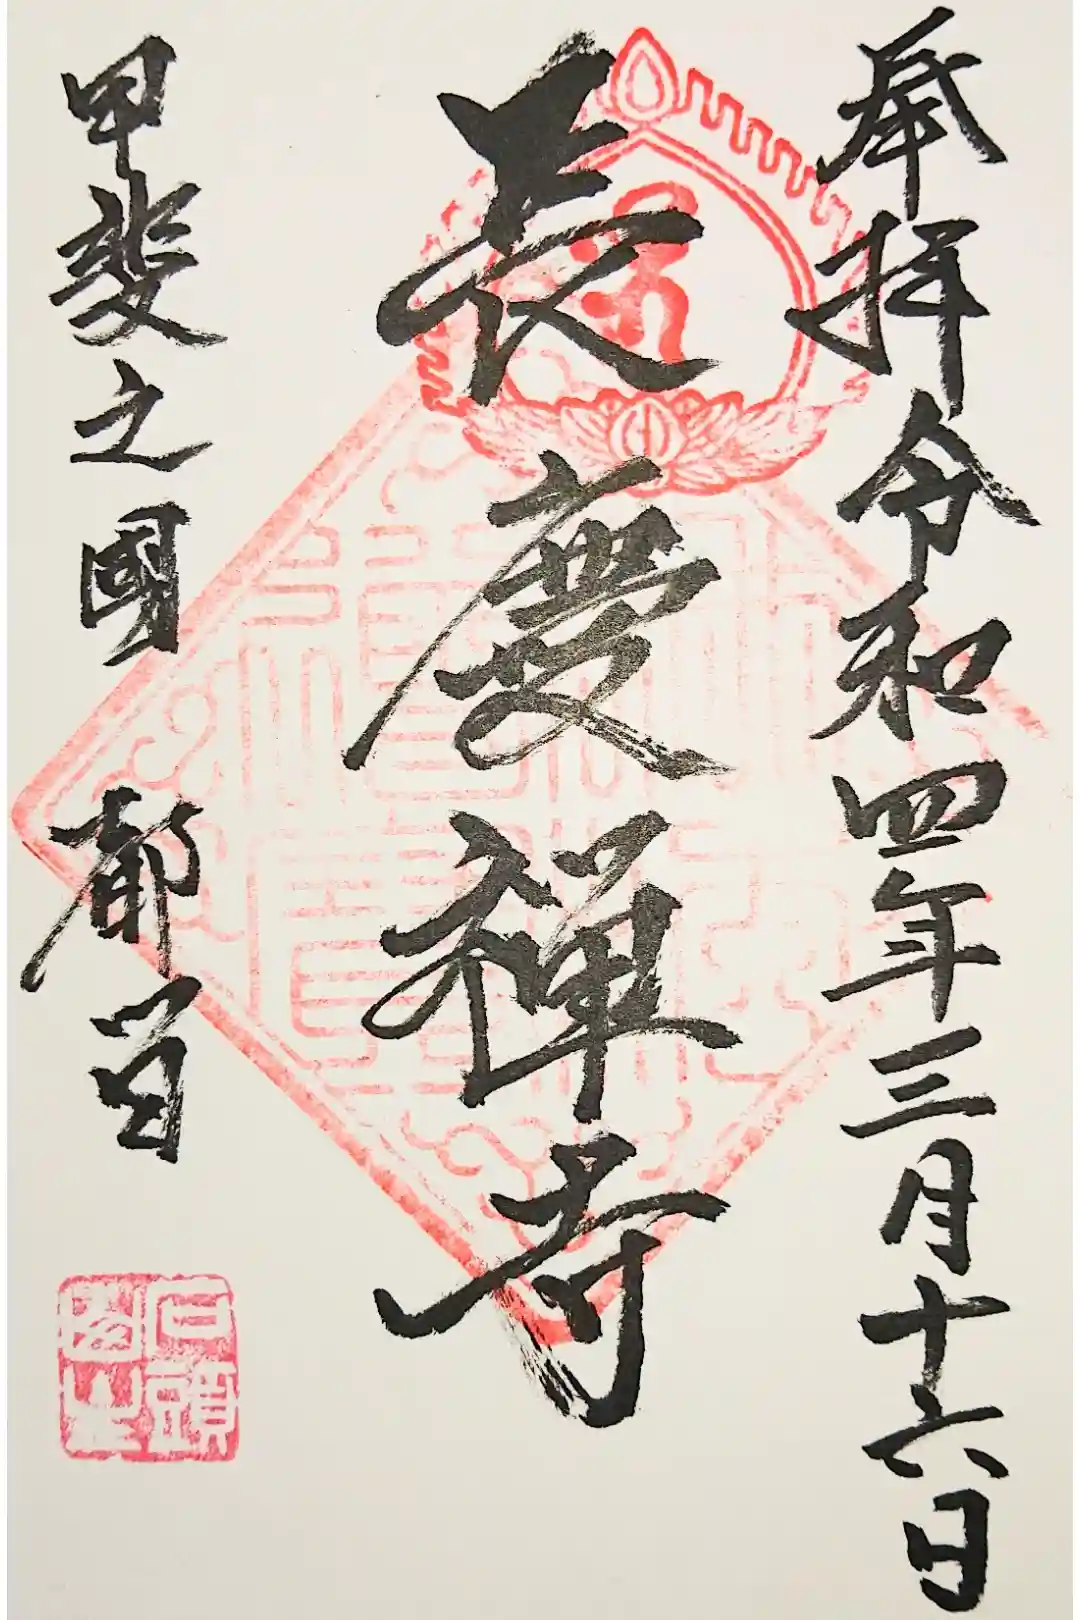 奉拝 令和四年三月十六日
長慶禅寺
甲斐之國 都留